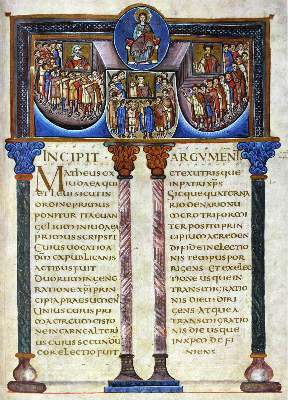 INCIPIT
MATHEUS EX
IUDAEA QUI
ET LEUI SICUT IN
ORDINE PRIMUS
PONITUR ITA EUAN
GELIUM IN IUDAEA
PRIMUS SCRIPSIT
CUIUS UOCATIO A
DM EX PUBLICANIS
ACTIBUS FUIT
DUORUM IN GENE
RATIONE XPI PRIN
CIPIA PRAESUMEN
UNIUS CUIUS PRI
MA CIRCUMCISIO
NE IN CARNE ALTERI
US CUIUS SECUNDU
COR ELECTIO FUIT
ARGUMENT
ET EX UTRISQUE
IN PATRI XPS
SICQUE QUATERNA
RIO DENARIO NU
MERO TRIFORMI
TER POSITI PRIN
CIPIUM A CREDEN
DI FIDE IN ELECTIO
NIS TEMPUS POR
RIGENS ET EX ELEC
TIONE USQUE IN
TRANSMIGRATIO
NIS DIEM DIRI
GENS ATQUE A
TRANSMIGRATIO
NIS DIE USQUE
IN XPM DEFI
NIENS